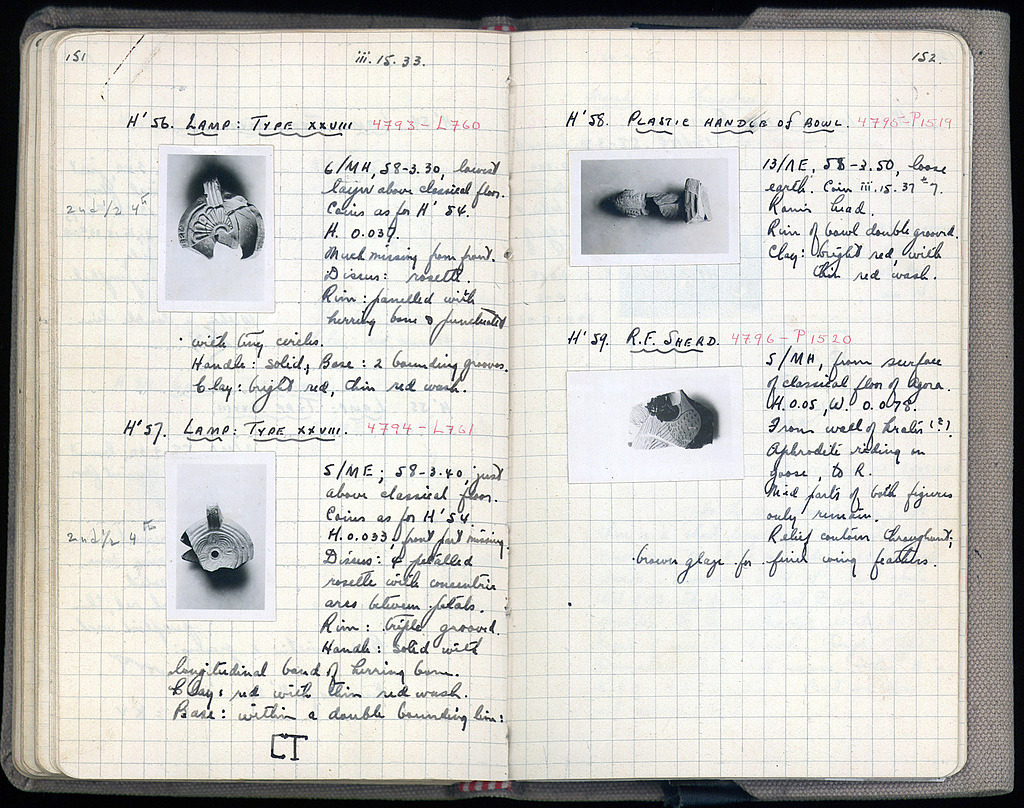 151
iii.15.33.
H'56. LAMP: TYPE XXVIII 4793-L760
2nd 1/2 4th
6/MH, 58-3.30, lowest
layer above classical floor.
Coins as for H'54.
H. 0.037.
Much missing from front.
Discus: rosette.
Rim: panelled with
herring bone & punctuated
with tiny circles.
Handle: solid; Base: 2 bounding grooves.
Clay: bright red, thin red wash.
H'57. LAMP: TYPE XXVIII. 4794-L761
2nd 1/2 4th
5/ME; 58-3.40, just
above classical floor.
Coins as for H'54
H. 0.033, front part missing.
Discus: 4 petalled
rosette with concentric
arcs between petals.
Rim: triple grooved.
Handle: solid with
longitudinal band of herring bone.
Clay: red with thin red wash.
Base: within a double bounding line:
CT
152.
H'58. PLASTIC HANDLE OF BOWL. 4795-P1519
13/ΛE, 58-3.50, loose
earth. Coin iii.15.37 #7.
Ram's head.
Rim of bowl double grooved.
Clay: bright red, with
thin red wash.
H'59. R.F. SHERD. 4796-P1520
5/MH, from surface
of classical floor of Agora.
H. 0.05, W. 0.078.
From wall of krater (?).
Aphrodite riding on
goose, to R.
Mid parts of both figures
only remain.
Relief contour throughout;
brown glaze for finer wing feathers.